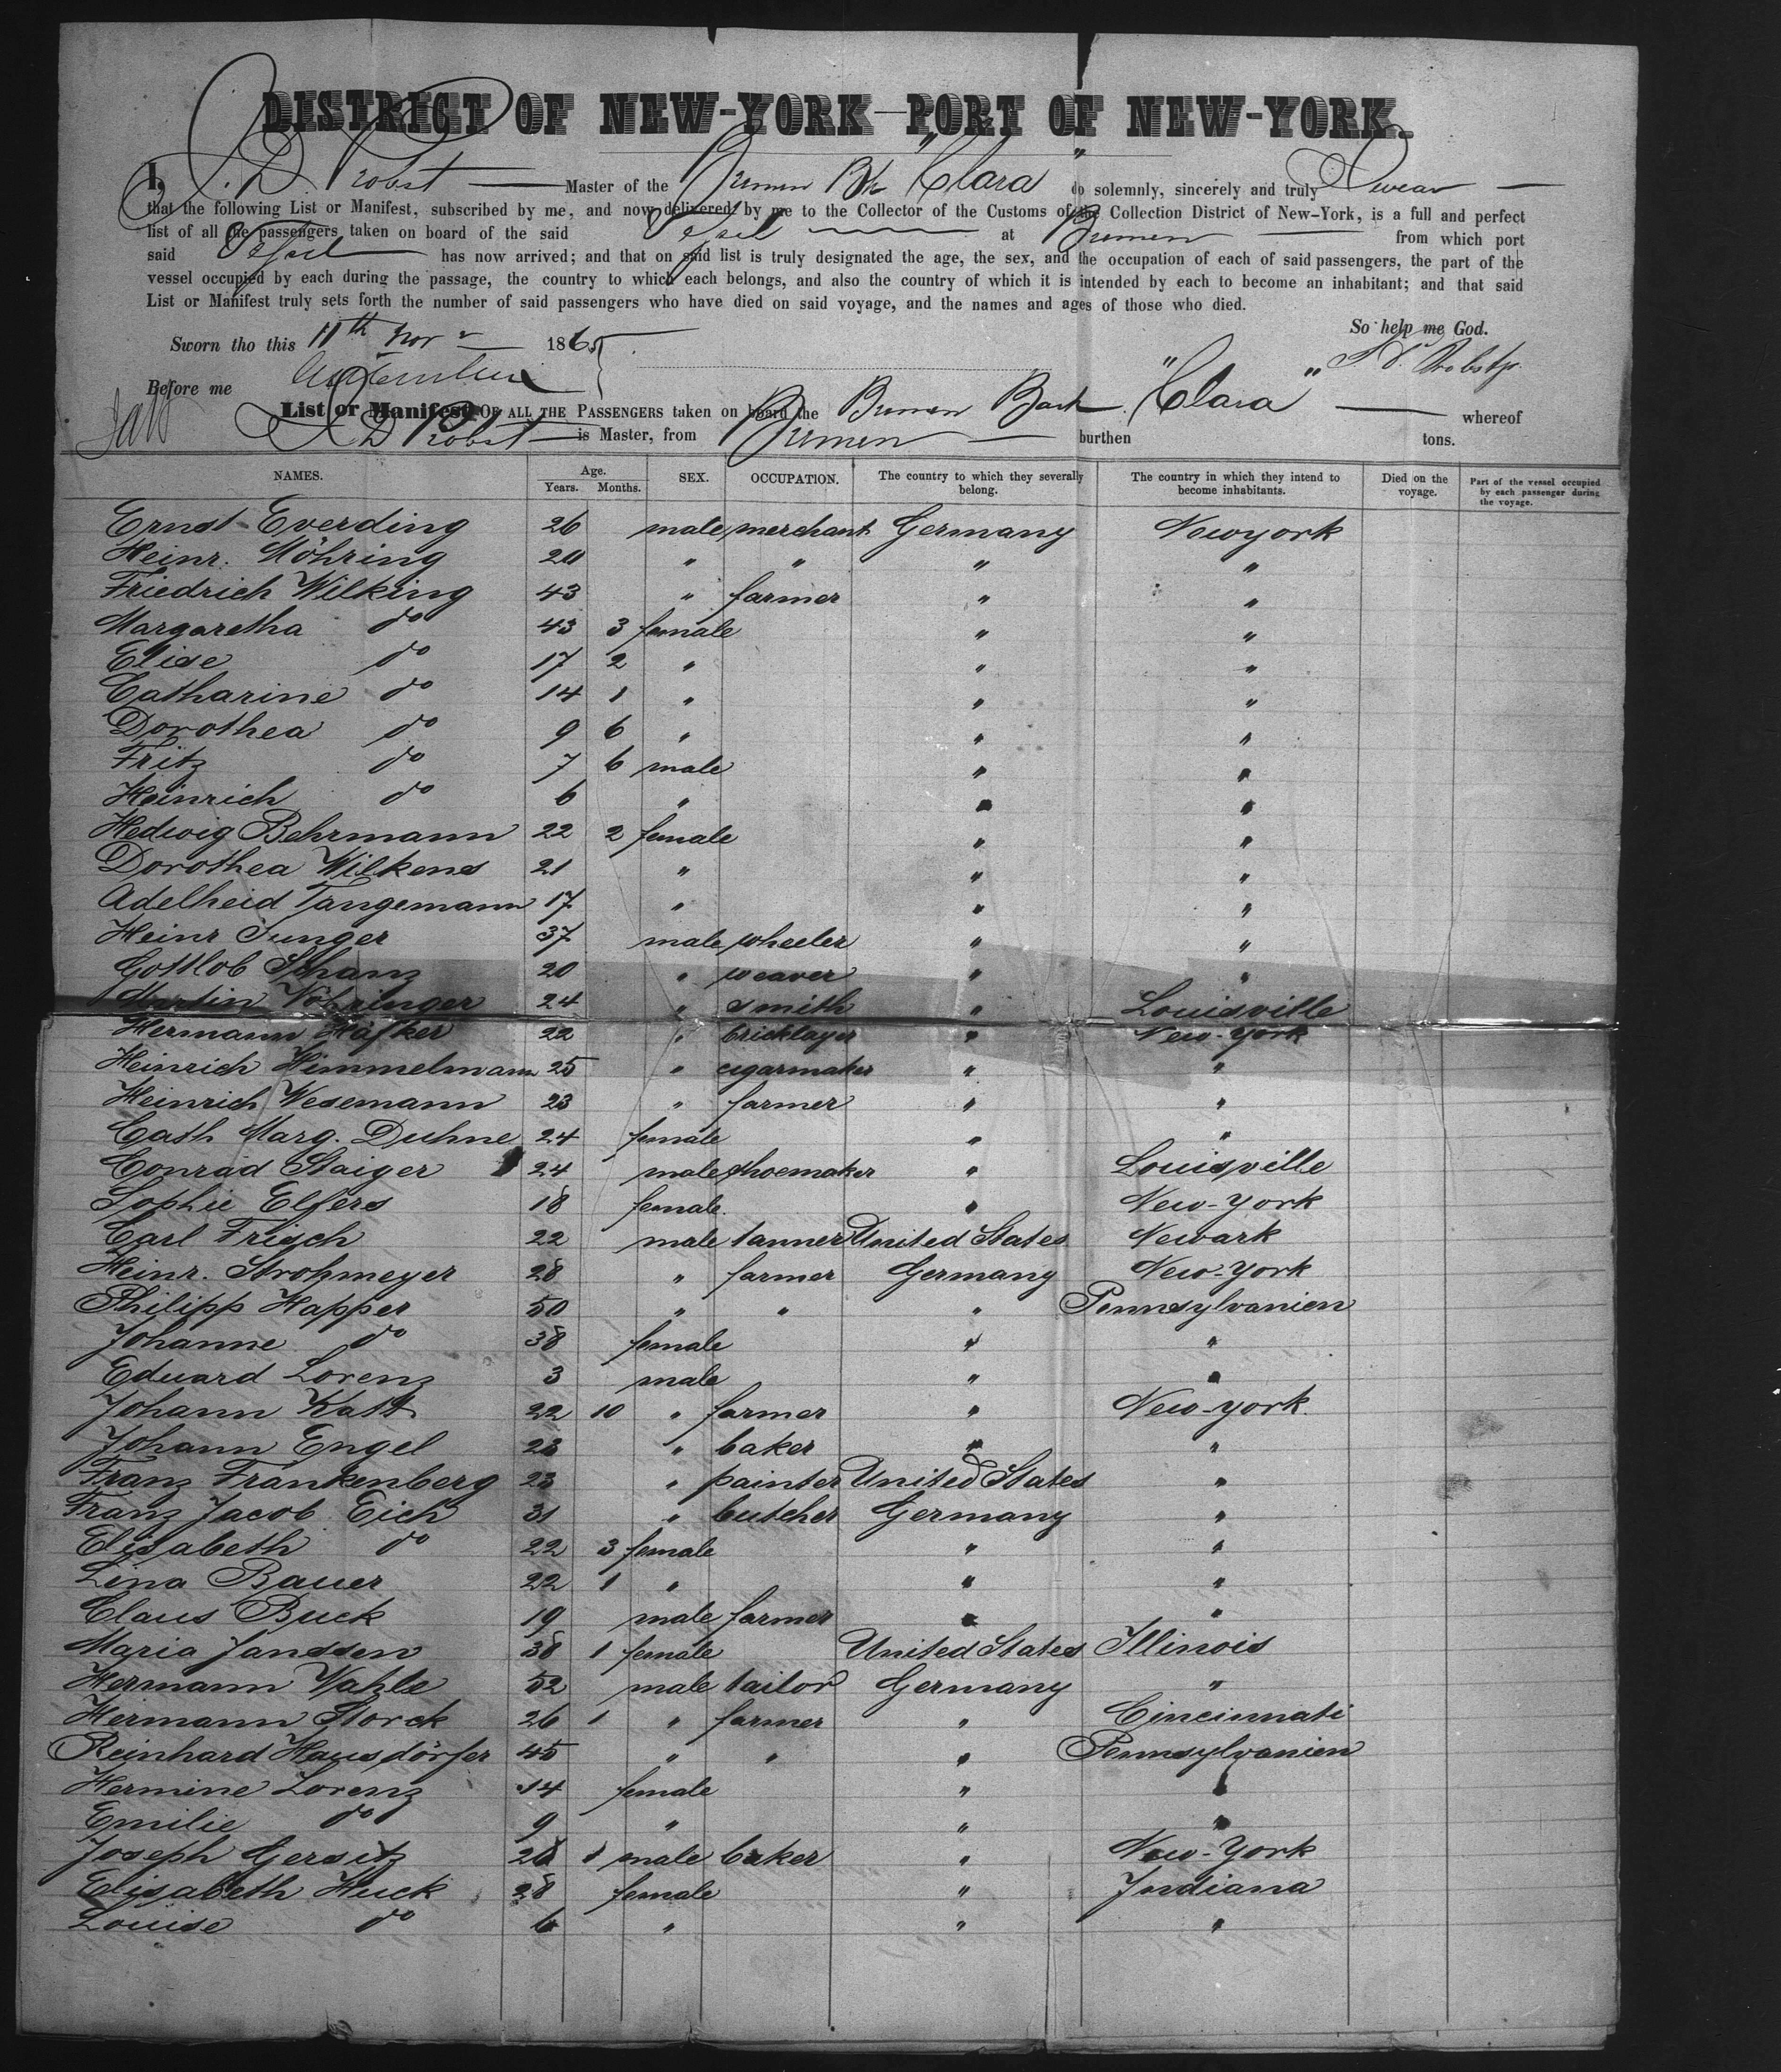 DISTRICT OF NEW-YORK PORT OF NEW-YORK.
I, D. Probst Master of the Bremen Bk "Clara" do solemnly, sincerely and truly Swear
that the following List or Manifest, subscribed by me, and now delivered by me to the Collector of the Customs of the Collection District of New-York, is a full and perfect
list of all the passengers taken on board of the said Vessel at Bremen from which port
said Vessel has now arrived; and that on said list is truly designated the age, the sex, and the occupation of each of said passengers, the part of the
vessel occupied by each during the passage, the country to which each belongs, and also the country of which it is intended by each to become an inhabitant; and that said
List or Manifest truly sets forth the number of said passengers who have died on said voyage, and the names and ages of those who died.
So help me God.
Sworn tho this 11th Nov 1865
Before me
List or Manifest OF ALL THE PASSENGERS taken on board the Bremen Bark "Clara" whereof
D Probst is Master, from Bremen burthen tons.
NAMES. Age. Years. Months. SEX. OCCUPATION. The country to which they severally belong. The country in which they intend to become inhabitants. Died on the voyage. Part of the vessel occupied by each passenger during the voyage.
Ernst Everding 26 male merchant Germany Newyork
Heinr. Möhring 20 " " " "
Friedrich Wilking 43 " farmer " "
Margaretha do 43 3 female " "
Elise do 17 2 " " "
Catharine do 14 1 " " "
Dorothea do 9 6 " " "
Fritz do 7 6 male " "
Heinrich do 6 " " "
Hedwig Behrmann 22 2 female " "
Dorothea Wilkens 21 " " "
Adelheid Tangemann 17 " " "
Heinr Junger 37 male wheeler " "
Gottlob Schanz 20 " weaver " "
Martin Vöhringer 24 " smith " Louisville
Hermann Häfker 22 " bricklayer " New-York
Heinrich Himmelmann 25 " cigarmaker " "
Heinrich Wesemann 23 " farmer " "
Cath Marg. Duhne 24 female " "
Conrad Staiger 24 male shoemaker " Louisville
Sophie Elfers 18 female " New-York
Carl Frisch 22 male tanner United States Newark
Heinr. Strohmeyer 28 " farmer Germany New-York
Philipp Happer 50 " " " Pennsylvanien
Johanne do 38 female " "
Eduard Lorenz 3 male " "
Johann Katt 22 10 " farmer " New-york
Johann Engel 23 " baker " "
Franz Frankenberg 23 " painter United States "
Franz Jacob Eich 31 " butcher Germany "
Elisabeth do 22 3 female " "
Lina Bauer 22 1 " " "
Claus Buck 19 male farmer " "
Maria Janssen 38 1 female United States Illinois
Hermann Wahls 52 male tailor Germany "
Hermann Storck 26 1 " farmer " Cincinnati
Reinhard Hausdörfer 45 " " " Pennsylvanien
Hermine Lorenz 14 female " "
Emilie do 9 " " "
Joseph Gersitz 28 1 male baker " New-York
Elisabeth Huck 28 female " Indiana
Louise do 6 " " "